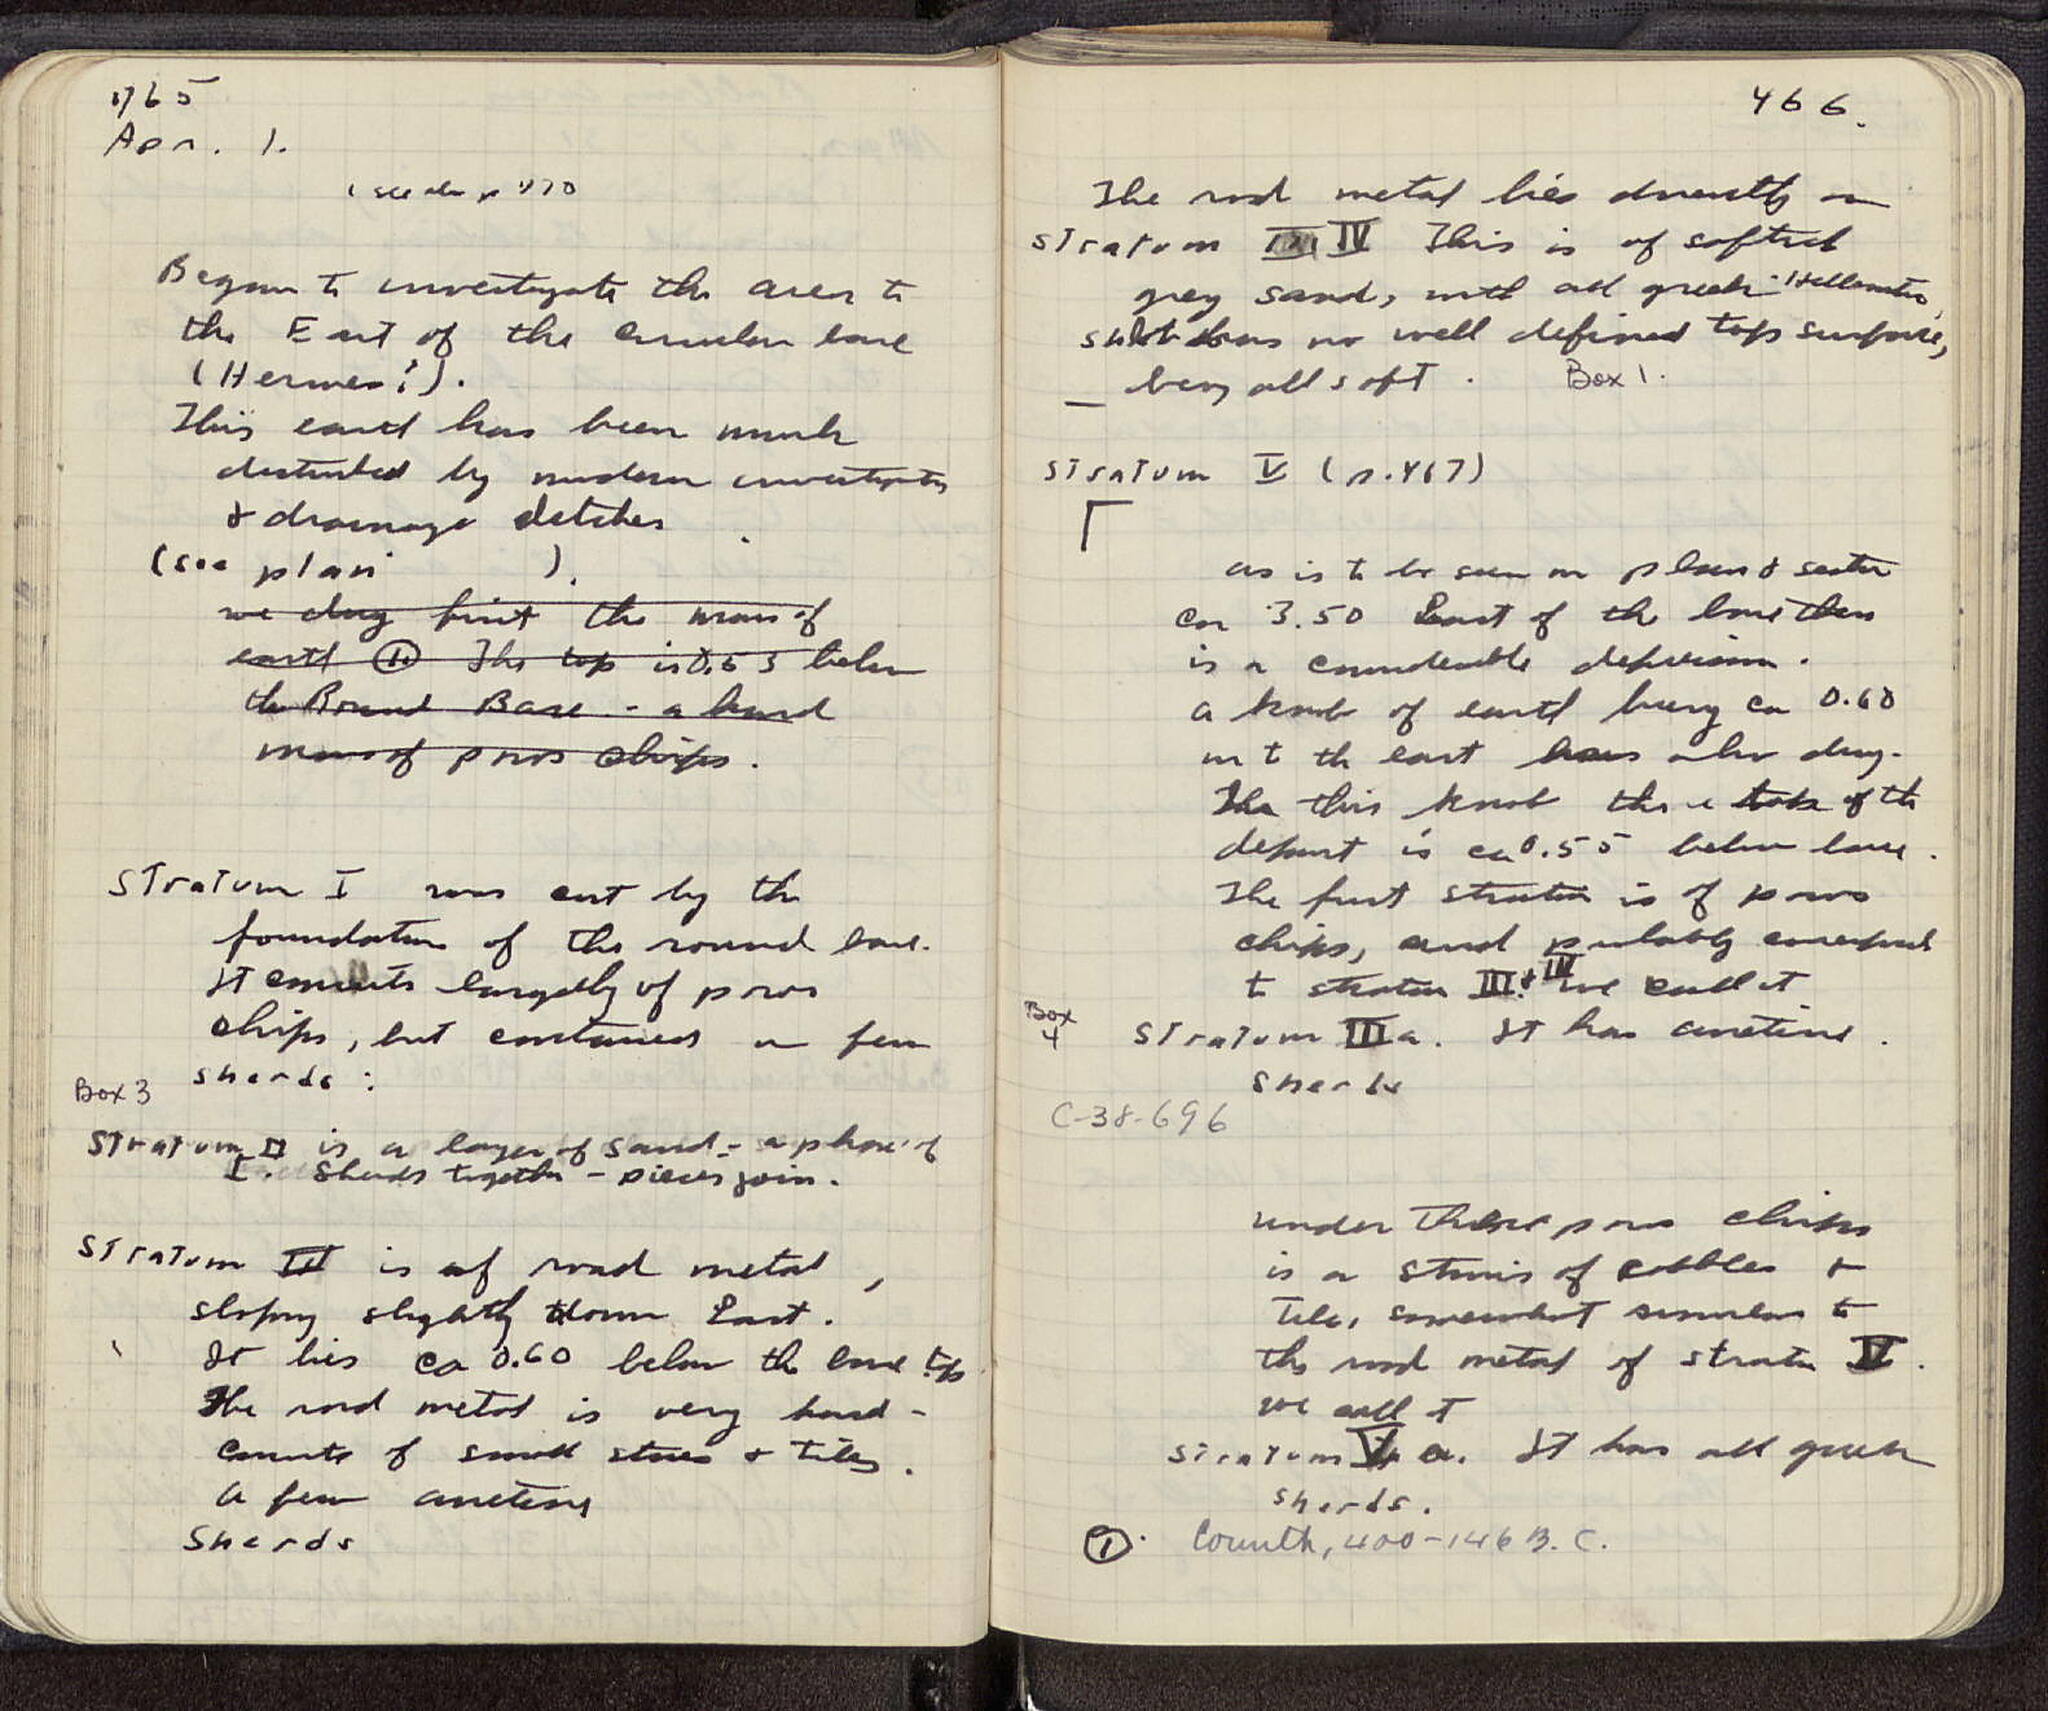 465
Apr. 1.
(see also p 470
Began to investigate the area to
the East of the circular base
(Hermes?).
This earth has been much
disturbed by modern investigation
& drainage ditches.
(see plan ).
we dug first the mass of
earth ① The top is 0.63 below
the Round Base - a hard
mass of poros chips.
Stratum I was cut by the
foundation of the round base.
It consists largely of poros
chips, but contained a few
sherds:
Box 3
Stratum II is a layer of sand - a phase of
I. Sherds together - pieces join.
Stratum III is of road metal,
sloping slightly down East.
It lies ca 0.60 below the base top
The road metal is very hard -
consists of small stones & tiles.
A few arretine
Sherds
466.
The road metal lies directly on
Stratum IV This is of softish
grey sand, with all greek Hellenistic,
has no well defined top surface,
being all soft. Box 1.
Stratum V (p. 467)
as is to be seen on plan & section
ca 3.50 East of the base there
is a considerable depression.
a knob of earth being ca 0.60
m to the east was also dug.
this knob the top of the
deposit is ca 0.55 below base.
The first stratum is of poros
chips, and probably correspond
to stratum III & IV we call it
Box
4
Stratum III a. It has arretine.
sherds
C-38-696
under these poros chips
is a stratum of cobbles &
tile, somewhat similar to
the road metal of stratum V.
we call it
Stratum V a. It has all greek
sherds.
① Corinth, 400-146 B.C.